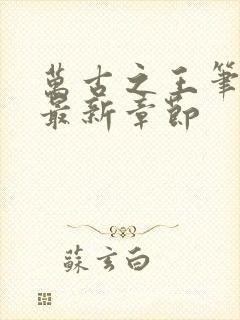 萬古之王筆
最新章節
蘇玄白